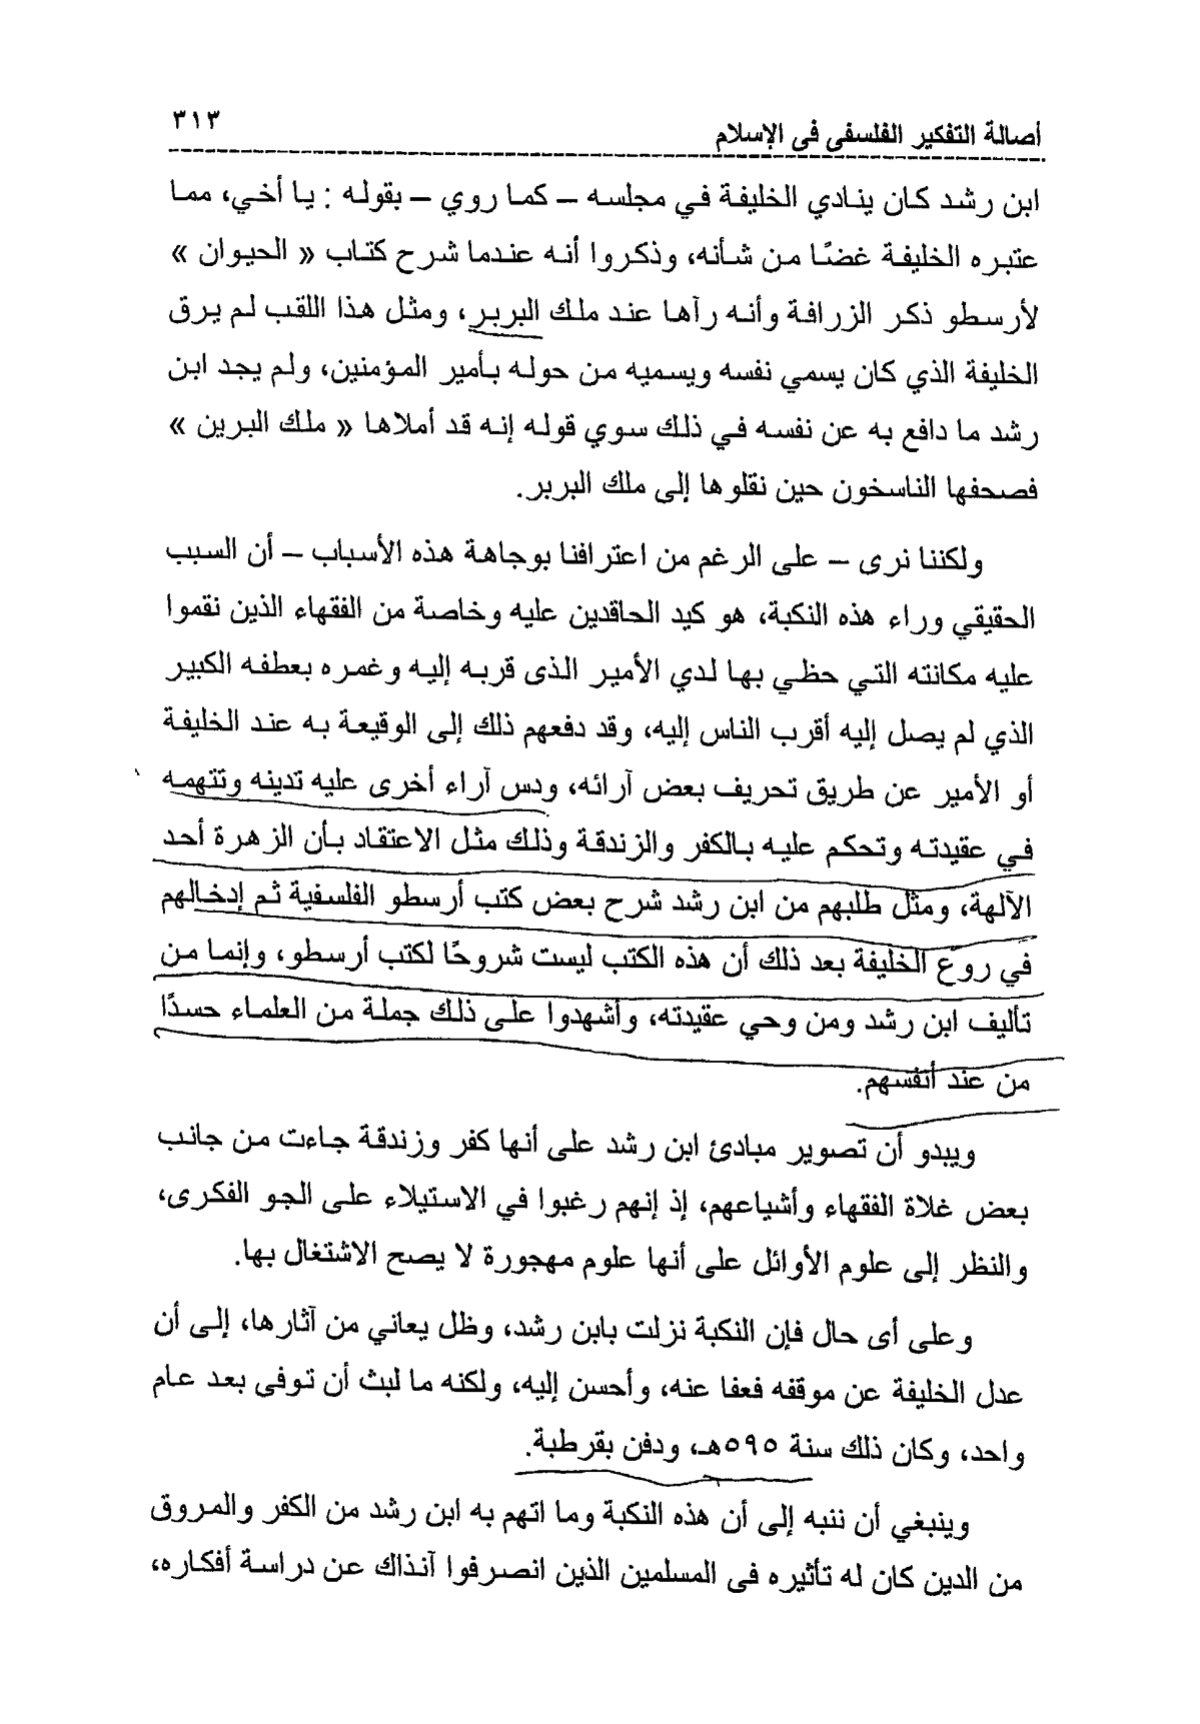 أصالة التفكير الفلسفى فى الإسلام
٣١٣
ابن رشد كان ينادي الخليفة في مجلسه – كما روي – بقوله : يا أخي، مما
عتبره الخليفة غضًا من شأنه، وذكروا أنه عندما شرح كتاب « الحيوان »
لأرسطو ذكر الزرافة وأنه رآها عند ملك البربر، ومثل هذا اللقب لم يرق
الخليفة الذي كان يسمي نفسه ويسميه من حوله بأمير المؤمنين، ولم يجد ابن
رشد ما دافع به عن نفسه في ذلك سوي قوله إنه قد أملاها « ملك البرين »
فصحفها الناسخون حين نقلوها إلى ملك البربر.
ولكننا نرى – على الرغم من اعترافنا بوجاهة هذه الأسباب – أن السبب
الحقيقي وراء هذه النكبة، هو كيد الحاقدين عليه وخاصة من الفقهاء الذين نقموا
عليه مكانته التي حظي بها لدي الأمير الذى قربه إليه وغمره بعطفه الكبير
الذي لم يصل إليه أقرب الناس إليه، وقد دفعهم ذلك إلى الوقيعة به عند الخليفة
أو الأمير عن طريق تحريف بعض آرائه، ودس آراء أخرى عليه تدينه وتتهمه
في عقيدته وتحكم عليه بالكفر والزندقة وذلك مثل الاعتقاد بأن الزهرة أحد
الآلهة، ومثل طلبهم من ابن رشد شرح بعض كتب أرسطو الفلسفية ثم إدخالهم
في روع الخليفة بعد ذلك أن هذه الكتب ليست شروحًا لكتب أرسطو، وإنما من
تأليف ابن رشد ومن وحي عقيدته، وأشهدوا على ذلك جملة من العلماء حسدًا
من عند أنفسهم.
ويبدو أن تصوير مبادئ ابن رشد على أنها كفر وزندقة جاءت من جانب
بعض غلاة الفقهاء وأشياعهم، إذ إنهم رغبوا في الاستيلاء على الجو الفكرى،
والنظر إلى علوم الأوائل على أنها علوم مهجورة لا يصح الاشتغال بها.
وعلى أى حال فإن النكبة نزلت بابن رشد، وظل يعاني من آثارها، إلى أن
عدل الخليفة عن موقفه فعفا عنه، وأحسن إليه، ولكنه ما لبث أن توفى بعد عام
واحد، وكان ذلك سنة ٥٩٥هـ، ودفن بقرطبة.
وينبغي أن ننبه إلى أن هذه النكبة وما اتهم به ابن رشد من الكفر والمروق
من الدين كان له تأثيره فى المسلمين الذين انصرفوا آنذاك عن دراسة أفكاره،